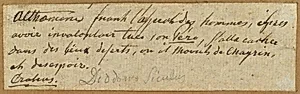 Althamène fuyant l'aspect des hommes, après
avoir involontair. tué son Père, s'alla cacher
dans des lieux deserts, où il mourut de chagrin,
et desespoir.
Crateus. Diodorus Siculus